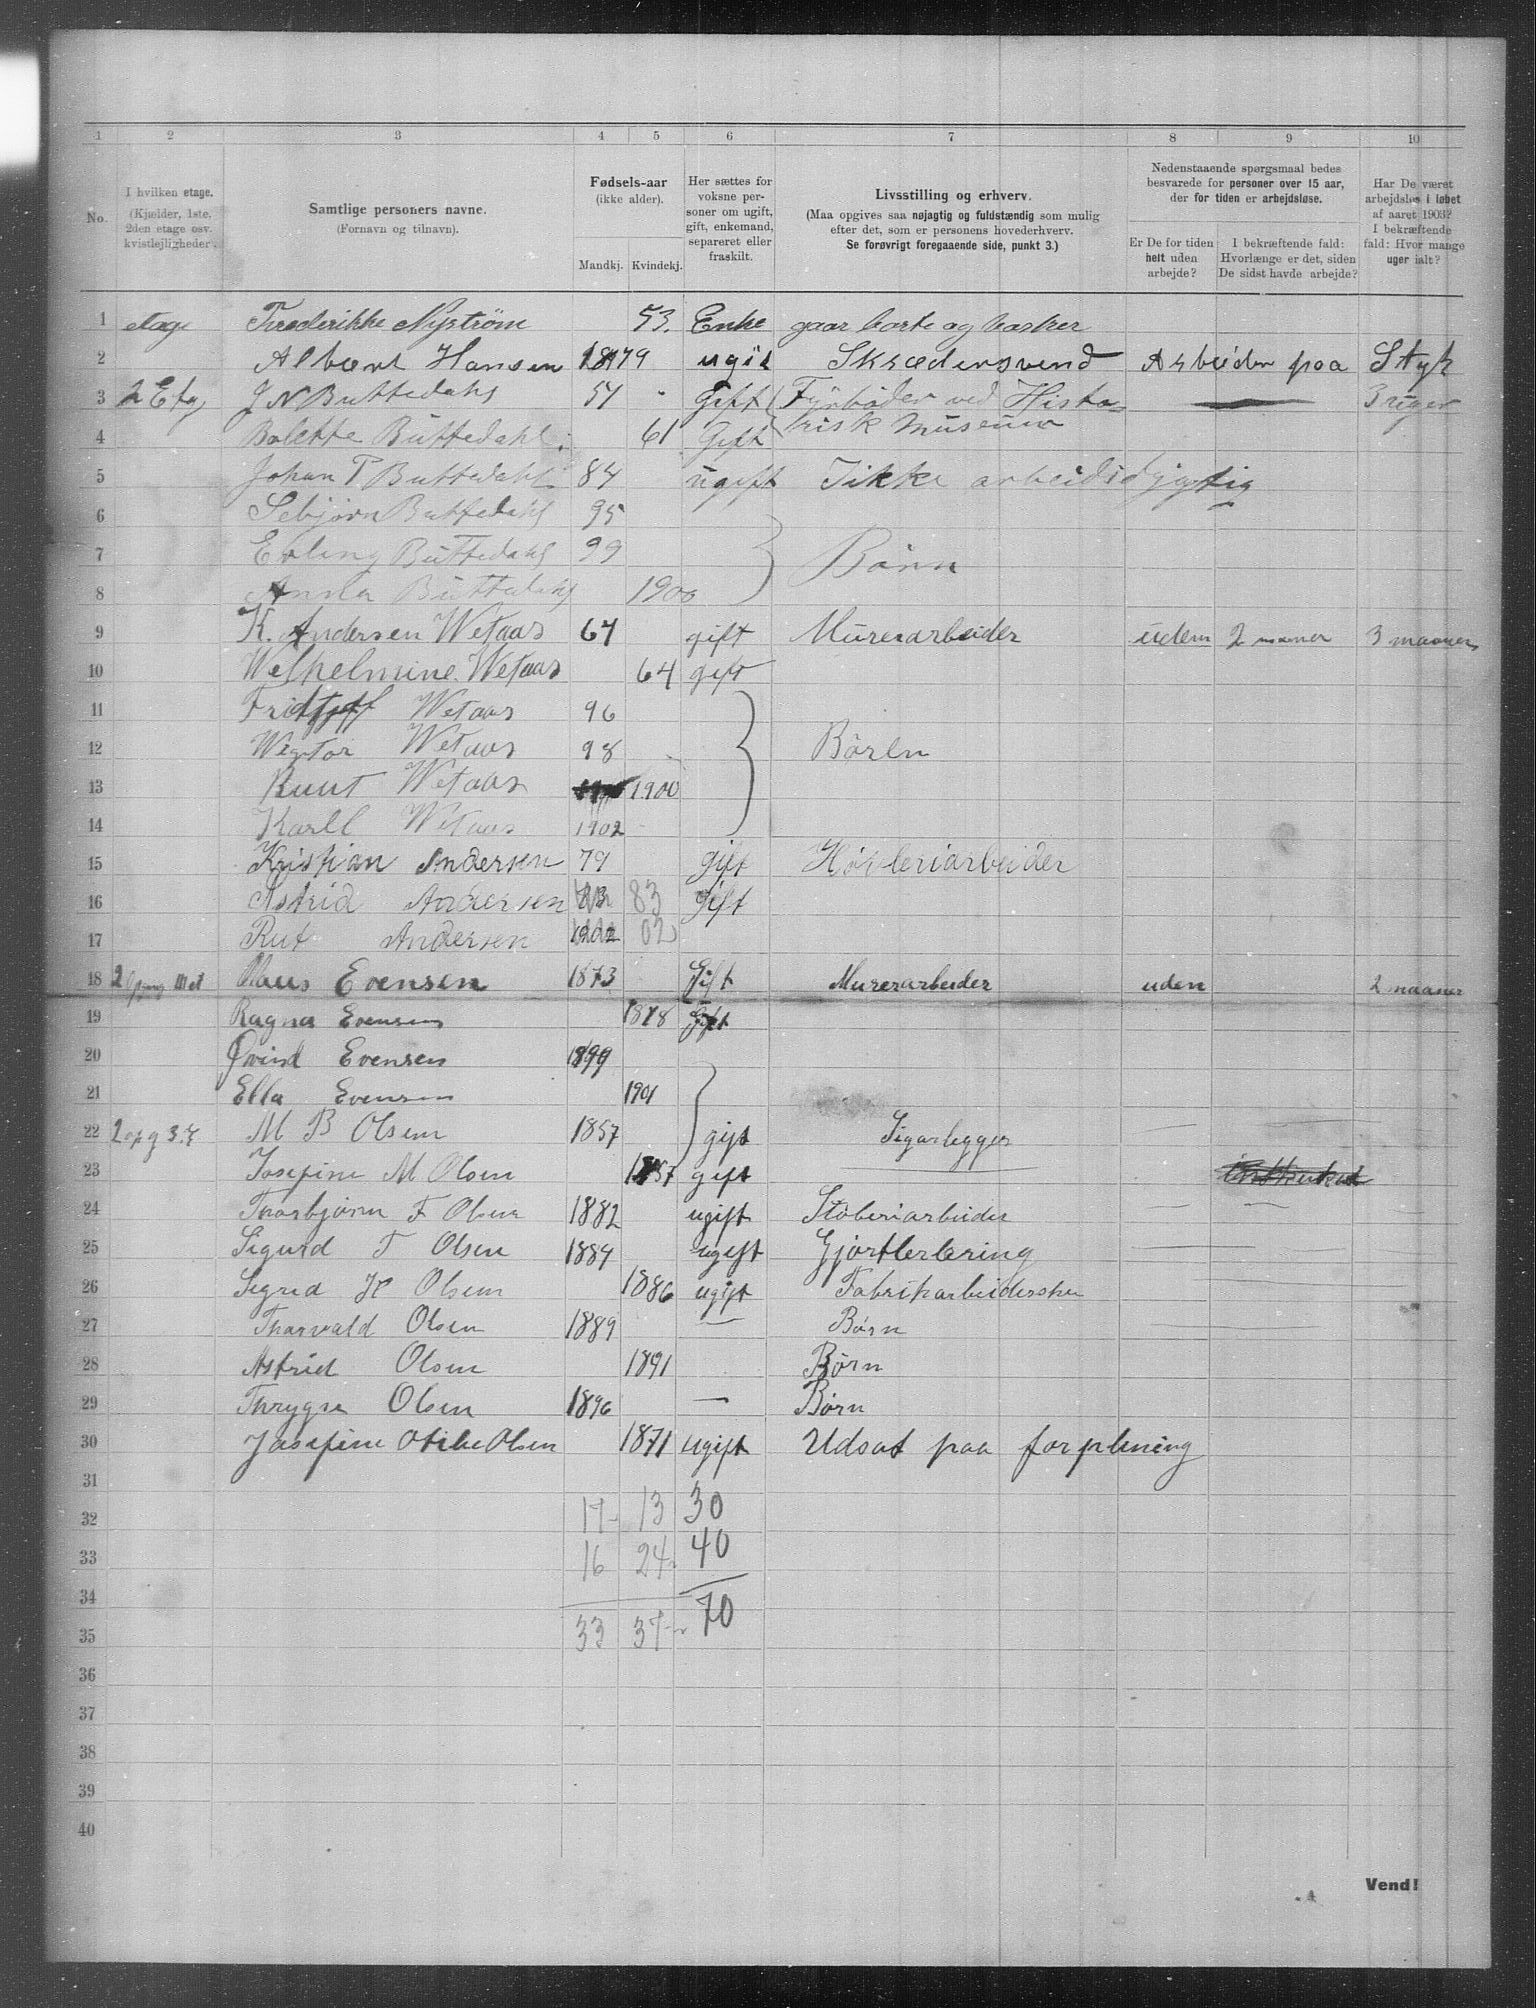 1 2 3 4 5 6 7 8 9 10
No.
I hvilken etage.
(Kjælder, 1ste,
2den etage osv.
kvistlejligheder.)
Samtlige personers navne.
(Fornavn og tilnavn).
Fødsels-aar
(ikke alder).
Mandkj. Kvindekj.
Her sættes for
voksne per-
soner om ugift,
gift, enkemand,
separeret eller
fraskilt.
Livsstilling og erhverv.
(Maa opgives saa nøjagtig og fuldstændig som mulig
efter det, som er personens hovederhverv.
Se forøvrigt foregaaende side, punkt 3.)
Nedenstaaende spørgsmaal bedes
besvarede for personer over 15 aar,
der for tiden er arbejdsløse.
Er De for tiden
helt uden
arbejde?
I bekræftende fald:
Hvorlænge er det, siden
De sidst havde arbejde?
Har De været
arbejdsløs i løbet
af aaret 1903?
I bekræftende
fald: Hvor mange
uger ialt?
1 etage Frederikke Nyström 53. Enke gaar borte og vasker
2 Albert Hansen 1879 ugift Skrædersvend Arbeider paa Styk
3 2 Etg J N Buttedahl 57 Gift Fyrbøder ved Histo 3 uger
4 Bolette Buttedahl 61 Gift risk Museum
5 Johan P Buttedahl 84 ugift Ikke arbeidsdygtig
6 Sebjørn Buttedahl 95
7 Erling Buttedahl 99 Børn
8 Anna Buttedahl 1900
9 K. Andersen Wetaas 67 gift Murerarbeider uden 2 maaner 3 maaner
10 Welhelmine Wetaas 64 gift
11 Fridtjoff Wetaas 96
12 Wigtor Wetaas 98 Børen
13 Ruut Wetaas 1900
14 Karll Wetaas 1902
15 Kristian Andersen 79 gift Høvleriarbeider
16 Astrid Andersen 83 gift
17 Rut Andersen 1902 02
18 Olaus Evensen 1873 Gift Murerarbeider uden 2 maaner
19 Ragna Evensen 1878 Gift
20 Øvind Evensen 1899
21 Ella Evensen 1901
22 2 opg 3. M B Olsen 1857 gift Sigarlegger
23 Josefine M Olsen 1857 gift
24 Thorbjørn F Olsen 1882 ugift Støberiarbeider
25 Sigurd T Olsen 1884 ugift Gjørtlerlæring
26 Sigrid H Olsen 1886 ugift Fabrikarbeiderske
27 Thorvald Olsen 1889 Børn
28 Astrid Olsen 1891 Børn
29 Thrygve Olsen 1896 — Børn
30 Josefine Otilie Olsen 1871 ugift Udsat paa forpleining
31
32 17 13 30
33 16 24 40
34
35 33 37 70
36
37
38
39
40
Vend!